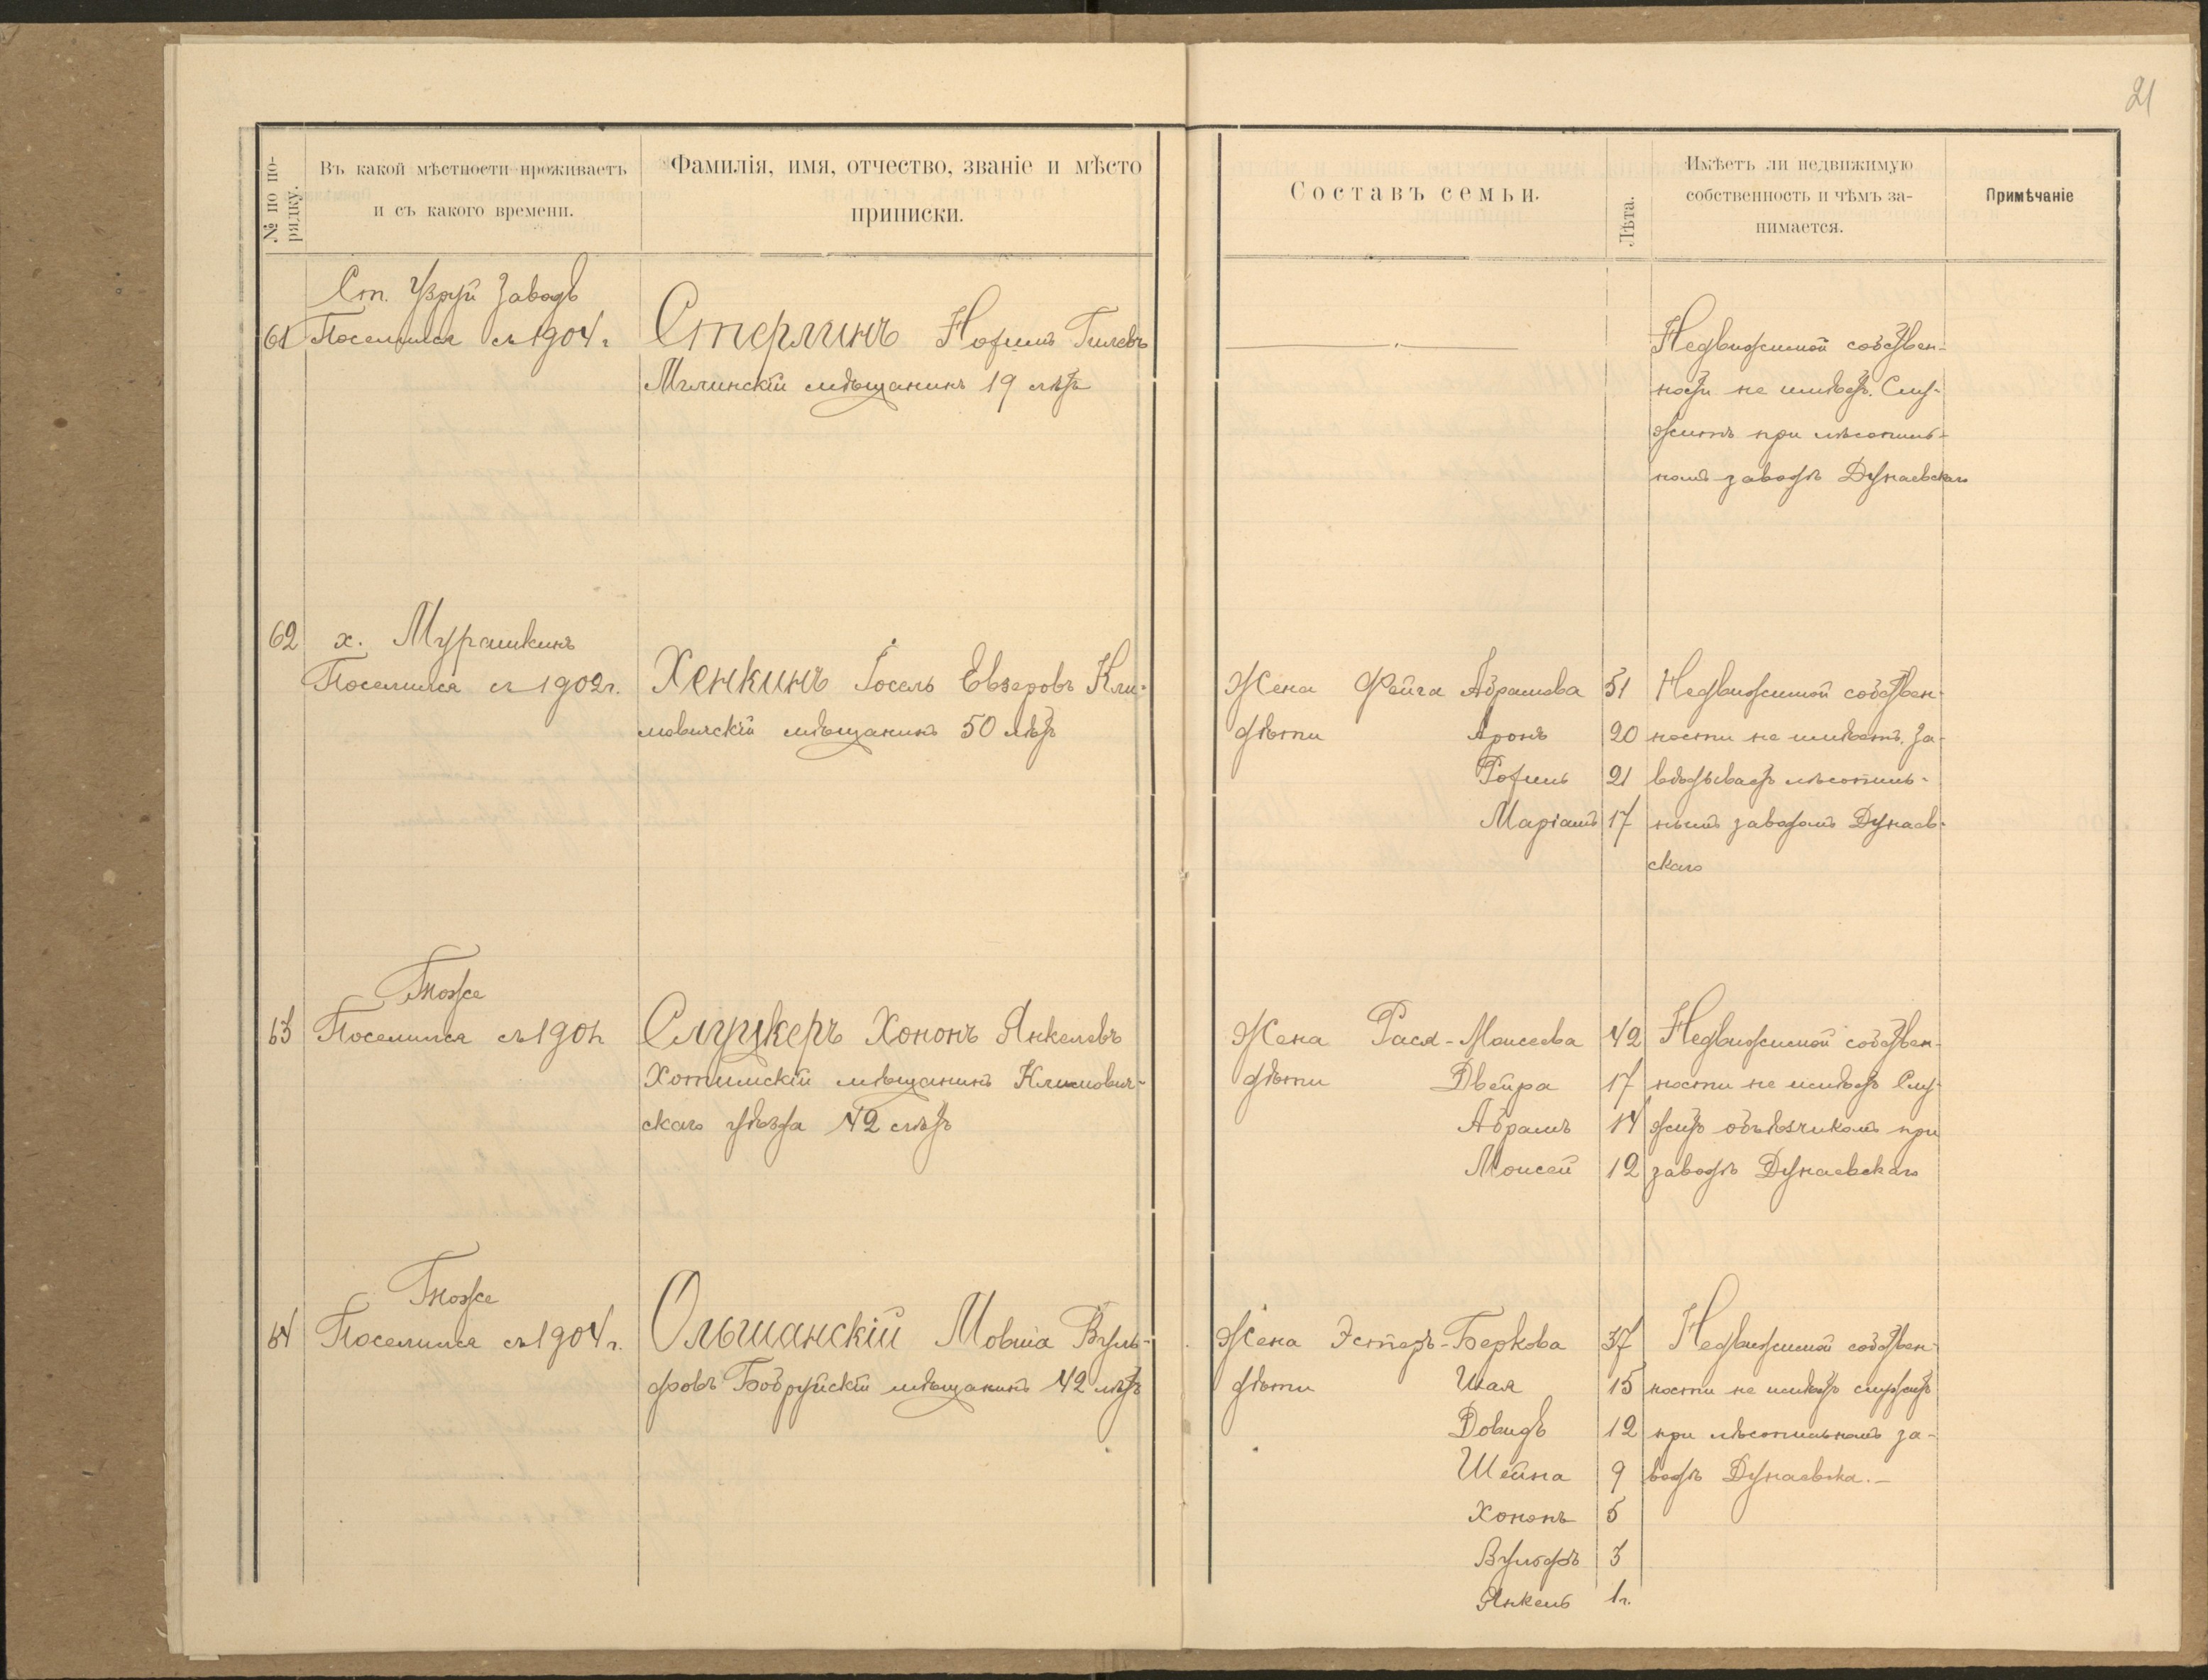 21
№ по по-
рядку.
Въ какой мѣстности проживаетъ
и съ какого времени.
Фамилія, имя, отчество, званіе и мѣсто
приписки.
Составъ семьи.
Лѣта.
Имѣетъ ли недвижимую
собственность и чѣмъ за-
нимается.
Примѣчаніе
Ст. Узруй Заводъ
61 Поселился съ 1904 г
Стерлинъ Нохимъ Гилевъ
Мглинскій мѣщанинъ 19 лѣтъ
Недвижимой собствен-
ности не имѣетъ. Слу-
житъ при лѣсопиль-
номъ заводѣ Дунаевскаго
62 х. Мурашкинъ
Поселился съ 1902 г.
Хенкинъ Іосель Евзеровъ Кли-
мовичскій мѣщанинъ 50 лѣтъ
Жена Фейга Абрамова 51
дѣти Аронъ 20
Рохиль 21
Маріамъ 17
Недвижимой собствен-
ности не имѣетъ. За-
вѣдываетъ лѣсопиль-
нымъ заводомъ Дунаев-
скаго
Тоже
63 Поселился съ 190
Слуцкеръ Хононъ Янкелевъ
Хотимскій мѣщанинъ Климович-
скаго уѣзда 42 лѣтъ
Жена Рася-Моисеева 42
дѣти Двейра 17
Абрамъ 14
Моисей 12
Недвижимой собствен-
ности не имѣетъ Слу-
житъ объѣзчикомъ при
заводѣ Дунаевскаго
Тоже
64 Поселился съ 1904 г.
Ольшанскій Мовша Вуль-
фовъ Бобруйскій мѣщанинъ 42 лѣтъ
Жена Эстеръ-Беркова 37
дѣти Шая 15
Довидъ 12
Шейна 9
Хононъ 5
Вульфъ 3
Янкель 1 г.
Недвижимой собствен-
ности не имѣетъ служитъ
при лѣсопильномъ за-
водѣ Дунаевска.—